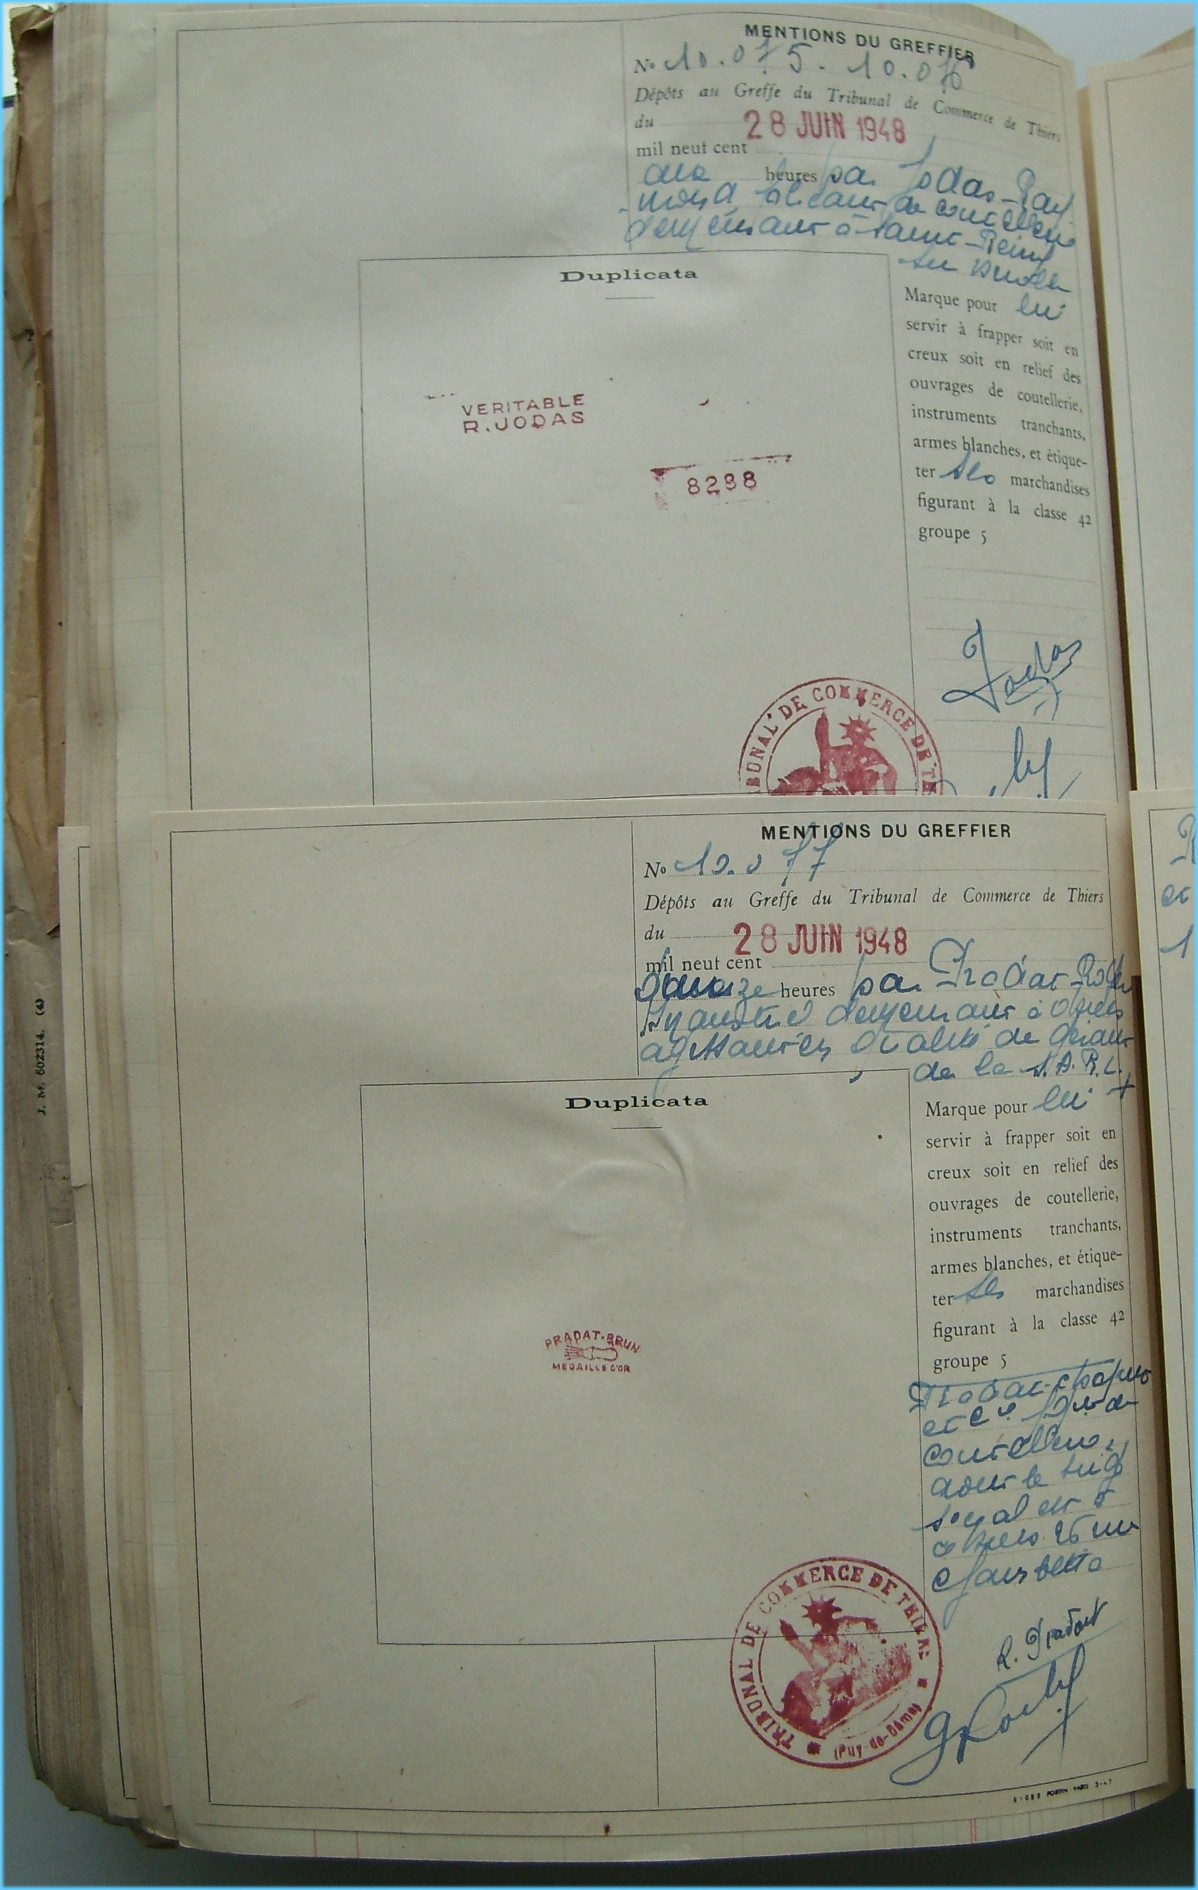 MENTIONS DU GREFFIER
No 10.075. 10.076
Dépôts au Greffe du Tribunal de Commerce de Thiers
du 28 JUIN 1948
mil neuf cent
heures par Jodas-Ray
mond de coutellerie
demeurant à Saint-Rémy
sur Durolle
Duplicata
Marque pour lui
servir à frapper soit en
creux soit en relief des
ouvrages de coutellerie,
instruments tranchants,
armes blanches, et étique-
ter ses marchandises
figurant à la classe 42
groupe 5
VERITABLE
R. JODAS
8298
Jodas
TRIBUNAL DE COMMERCE DE TH
MENTIONS DU GREFFIER
No 10.077
Dépôts au Greffe du Tribunal de Commerce de Thiers
du 28 JUIN 1948
mil neuf cent
quinze heures par Pradat-Roger
demeurant à
agissant en qualité de gérant
de la S.A.R.L.
Duplicata
Marque pour lui +
servir à frapper soit en
creux soit en relief des
ouvrages de coutellerie,
instruments tranchants,
armes blanches, et étique-
ter ses marchandises
figurant à la classe 42
groupe 5
PRADAT-BRUN
MEDAILLE D'OR
et Cie
coutellerie,
dont le siège
social est à
TRIBUNAL DE COMMERCE DE THIERS
(Puy-de-Dôme)
R. Pradat
J. M. 602314. (4)